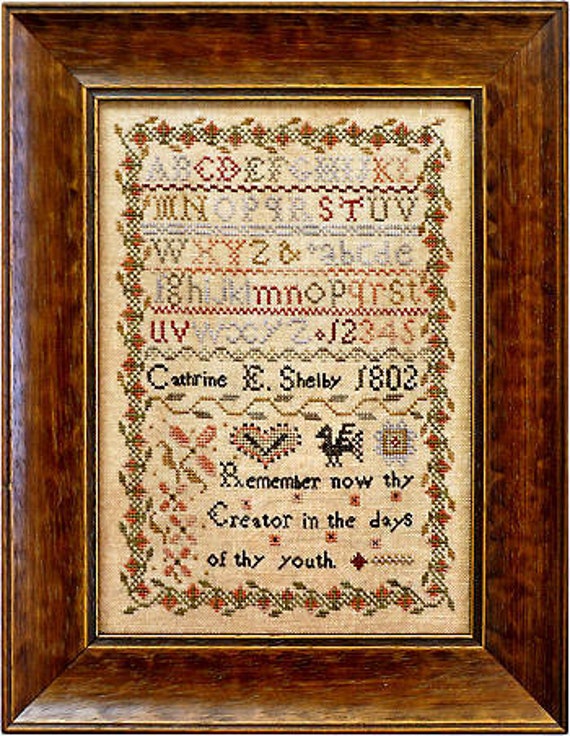 ABCDEFGHIJKL
MNOPQRSTUV
WXYZ & abcde
fghijklmnopqrst
uvwxyz 12345
Cathrine E. Shelby 1802
Remember now thy
Creator in the days
of thy youth.